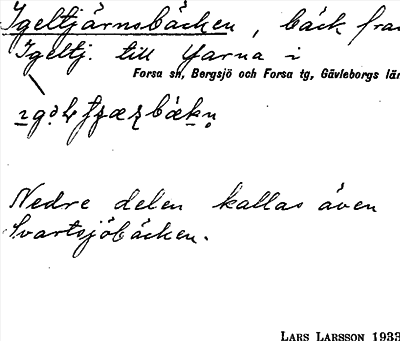 Igeltjärnsbäcken, bäck från
Igeltj. till Yarna i
Forsa sn, Bergsjö och Forsa tg, Gävleborgs län
Nedre delen kallas även
Svartsjöbäcken.
LARS LARSSON 1933